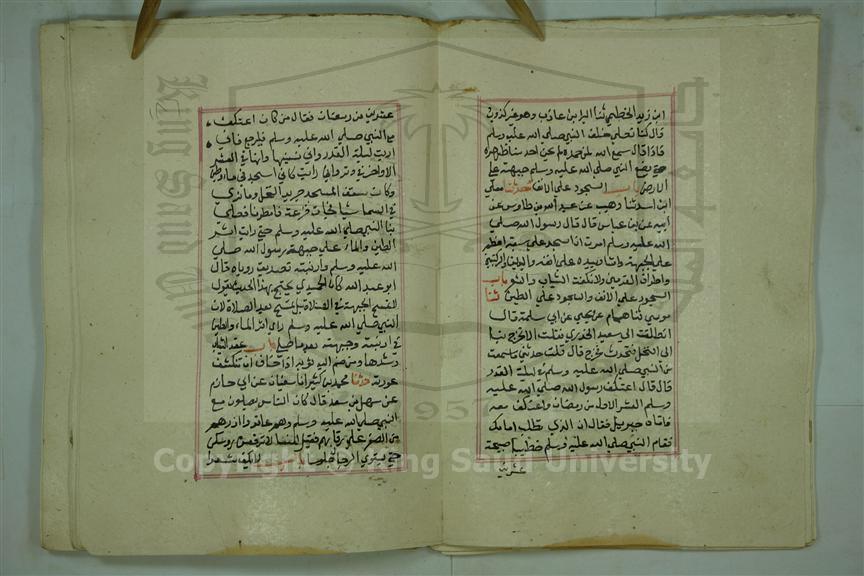 ابن يزيد الخطمي ثنا البراء بن عازب وهو غير كذوب
قال كنا نصلي خلف النبي صلى الله عليه وسلم
فاذا قال سمع الله لمن حمده لم يحن احد منا ظهره
حتى يضع النبي صلى الله عليه وسلم جبهته على
الارض باب السجود على الانف حدثنا معلى
ابن اسد ثنا وهيب عن عبد الله بن طاوس عن
ابيه عن ابن عباس قال قال رسول الله صلى
الله عليه وسلم امرت ان اسجد على سبعة اعظم
على الجبهة واشار بيده على انفه واليدين والركبتين
واطراف القدمين ولا نكفت الثياب والشعر باب
السجود على الانف والسجود على الطين ثنا
موسى ثنا همام عن يحيى عن ابي سلمة قال
انطلقت الى سعيد الخدري فقلت الا تخرج بنا
الى النخل نتحدث فخرج قال قلت حدثني ما سمعت
من النبي صلى الله عليه وسلم في ليلة القدر
قال قال اعتكف رسول الله صلى الله عليه
وسلم العشر الاول من رمضان واعتكف معه
فاتاه جبريل فقال ان الذي تطلب امامك
فقام النبي صلى الله عليه وسلم خطيبا صبيحة
عشرين
عشرين من رمضان فقال من كان اعتكف
مع النبي صلى الله عليه وسلم فليرجع فاني
اريت ليلة القدر واني نسيتها وانها في العشر
الاواخر في وتر واني رايت كاني اسجد في ماء وطين
وكان سقف المسجد جريد النخل وما نرى
في السماء شيا فجات قزعة فامطرنا فصلى
بنا النبي صلى الله عليه وسلم حتى رايت اثر
الطين والماء على جبهة رسول الله صلى
الله عليه وسلم وارنبته تصديق روياه قال
ابو عبد الله كان الحميدي يحتج بهذا الحديث يقول
لا تمسح الجبهة في الصلاة بل تمسح بعد الصلاة لان
النبي صلى الله عليه وسلم راي اثر الماء والطين
في ارنبته وجبهته بعد ما صلى باب عقد الثياب
وشدها ومن ضم اليه ثوبه اذا خاف ان تنكشف
عورته حدثنا محمد بن كثير انا سفيان عن ابي حازم
عن سهل بن سعد قال كان الناس يصلون مع
النبي صلى الله عليه وسلم وهم عاقدوا ازرهم
من الصغر على رقابهم فقيل للنساء لا ترفعن روسكن
حتى يستوي الرجال جلوسا باب لا يكف شعرا
Copyright © King Saud University
King Saud University
1957